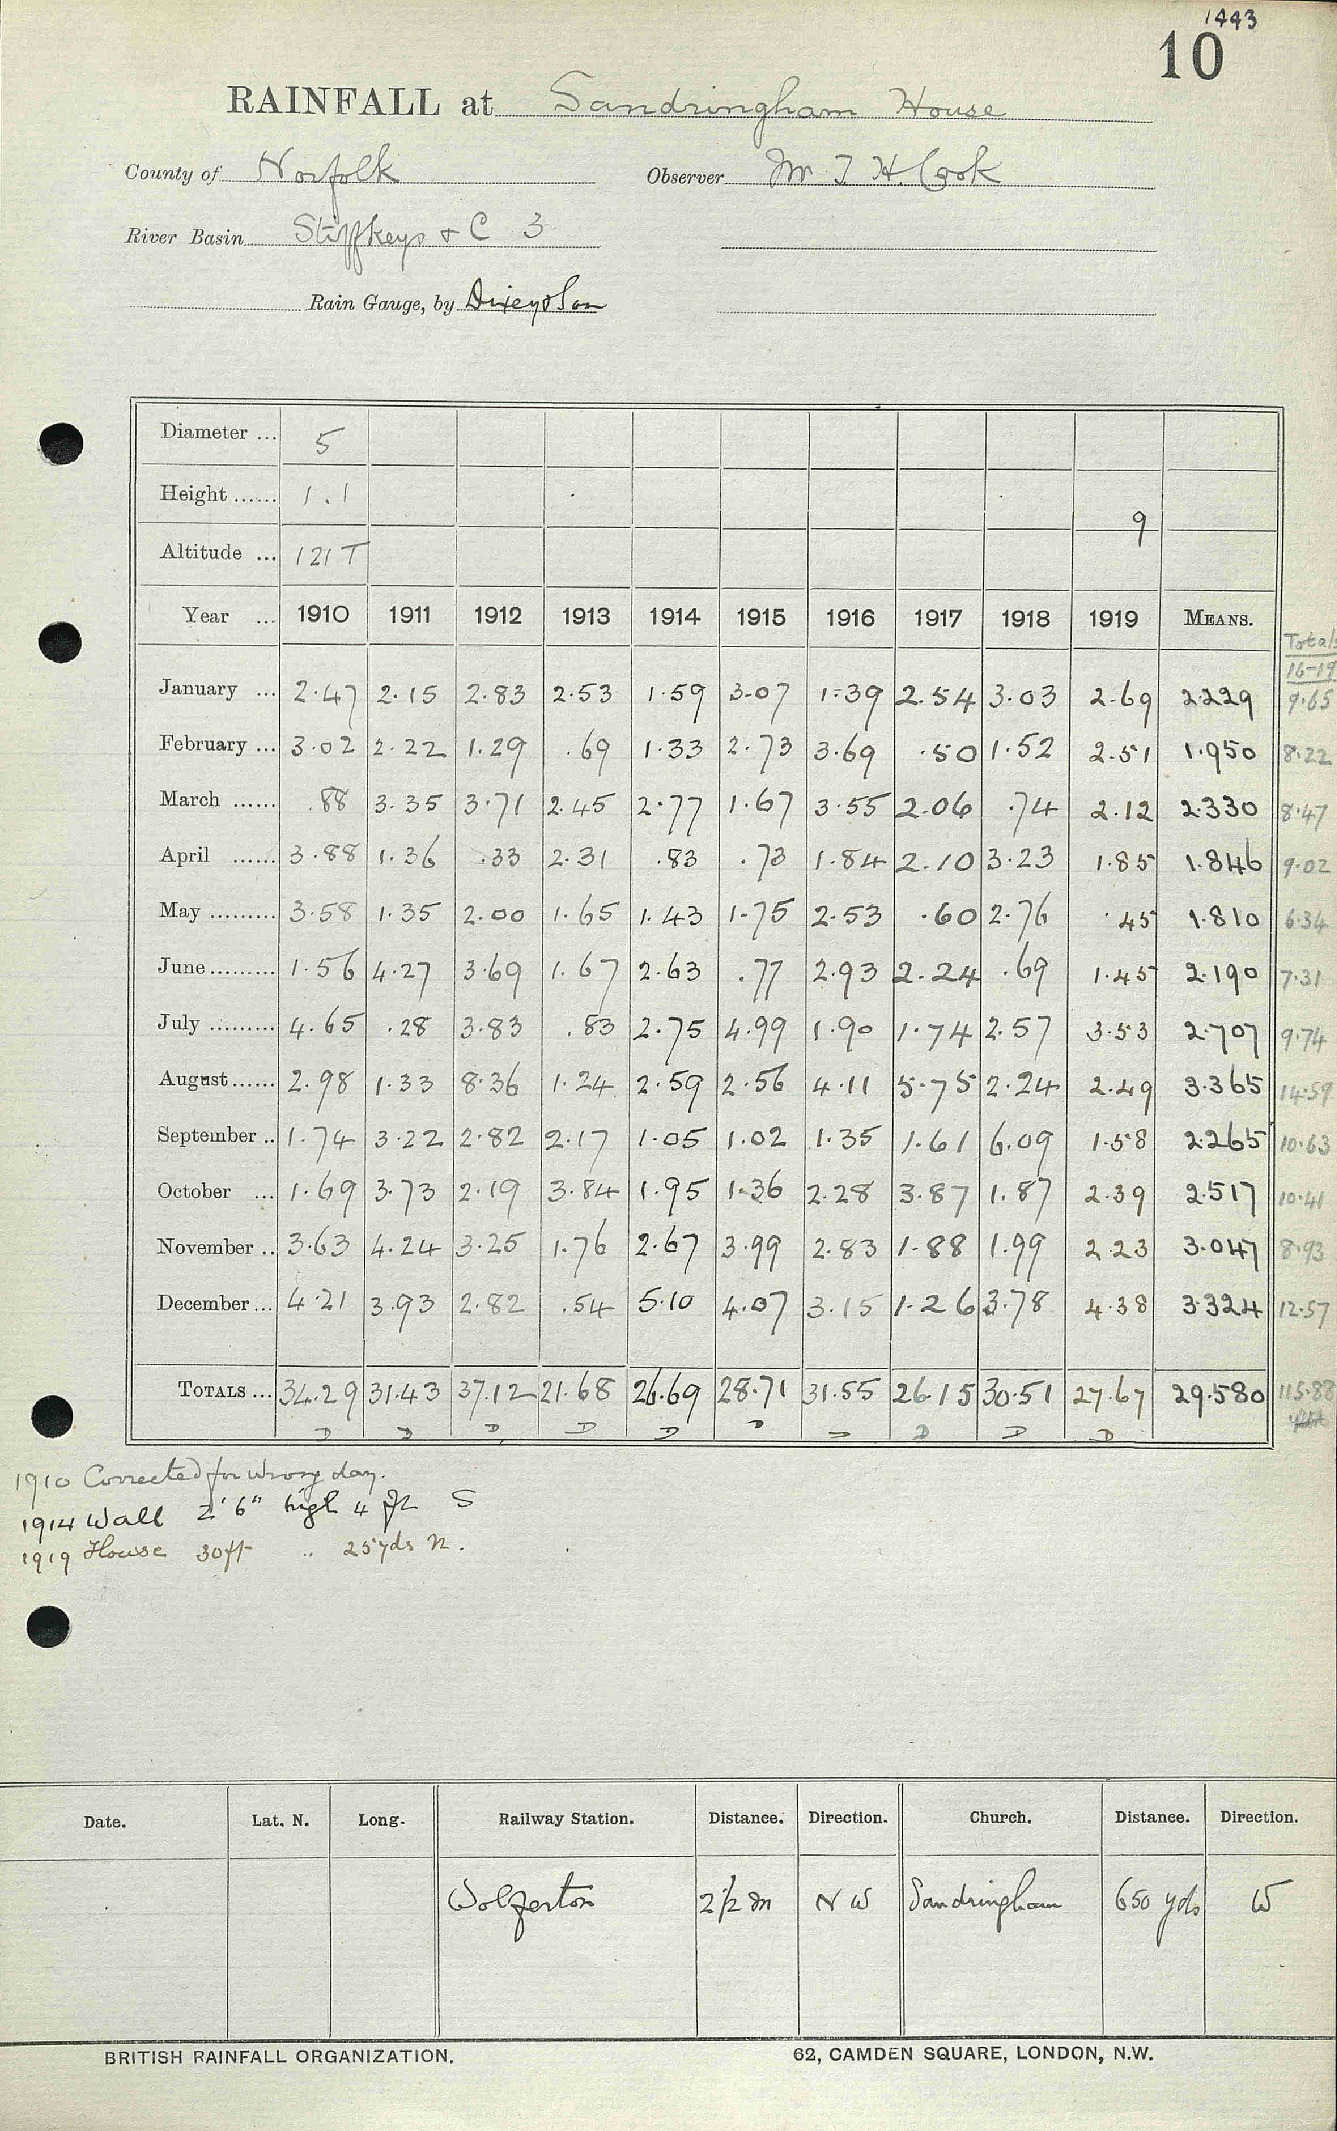 1443
10
RAINFALL at Sandringham House
County of Norfolk Observer Mr T H. Cook
River Basin Stiffkeys & C 3
Rain Gauge, by Dixey & Son
Diameter ... 5
Height ...... 1.1
9
Altitude ... 121 T
Year ... 1910 1911 1912 1913 1914 1915 1916 1917 1918 1919 MEANS.
Totals
16-19
January ... 2.47 2.15 2.83 2.53 1.59 3.07 1.39 2.54 3.03 2.69 2.229 9.65
February ... 3.02 2.22 1.29 .69 1.33 2.73 3.69 .50 1.52 2.51 1.950 8.22
March ...... .88 3.35 3.71 2.45 2.77 1.67 3.55 2.06 .74 2.12 2.330 8.47
April ...... 3.88 1.36 .33 2.31 .83 .73 1.84 2.10 3.23 1.85 1.846 9.02
May ......... 3.58 1.35 2.00 1.65 1.43 1.75 2.53 .60 2.76 .45 1.810 6.34
June ......... 1.56 4.27 3.69 1.67 2.63 .77 2.93 2.24 .69 1.45 2.190 7.31
July ......... 4.65 .28 3.83 .83 2.75 4.99 1.90 1.74 2.57 3.53 2.707 9.74
August ...... 2.98 1.33 8.36 1.24 2.59 2.56 4.11 5.75 2.24 2.49 3.365 14.59
September .. 1.74 3.22 2.82 2.17 1.05 1.02 1.35 1.61 6.09 1.58 2.265 10.63
October ... 1.69 3.73 2.19 3.84 1.95 1.36 2.28 3.87 1.87 2.39 2.517 10.41
November .. 3.63 4.24 3.25 1.76 2.67 3.99 2.83 1.88 1.99 2.23 3.047 8.93
December ... 4.21 3.93 2.82 .54 5.10 4.07 3.15 1.26 3.78 4.38 3.324 12.57
TOTALS ... 34.29 31.43 37.12 21.68 26.69 28.71 31.55 26.15 30.51 27.67 29.580 115.88
D D D D D D D D D D
1910 Corrected for wrong day.
1914 Wall 2'6" high 4 ft S
1919 House 30ft .. 25yds N.
Date. Lat. N. Long. Railway Station. Distance. Direction. Church. Distance. Direction.
Wolferton 2 1/2 m N W Sandringham 650 yds W
BRITISH RAINFALL ORGANIZATION. 62, CAMDEN SQUARE, LONDON, N.W.